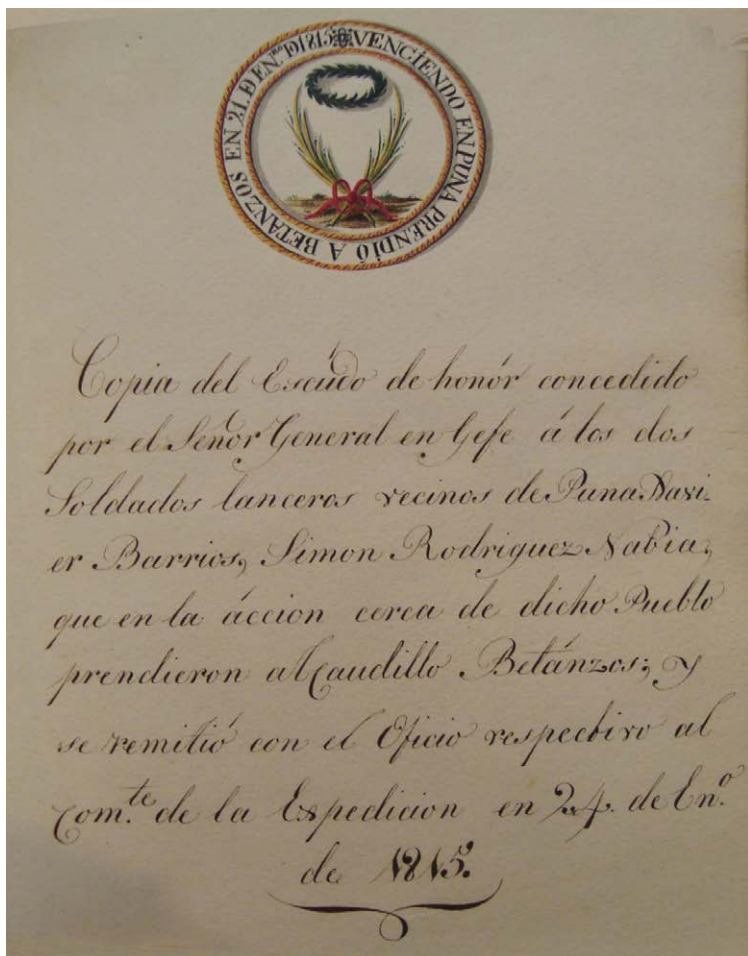 VENCIENDO EN PUNA PRENDIÓ A BETANZOS EN 21. D EN.ᴿᴼ D 1815
Copia del Escúdo de honór concedido
por el Señor General en Gefe á los dos
Soldados lanceros vecinos de Puna Xavi-
er Barrios, Simon Rodriguez Nabia,
que en la áccion cerca de dicho Pueblo
prendieron al Caudillo Betánzos; y
se remitió con el Oficio respectivo al
Com.te de la Expedicion en 24. de En.o
de 1815.